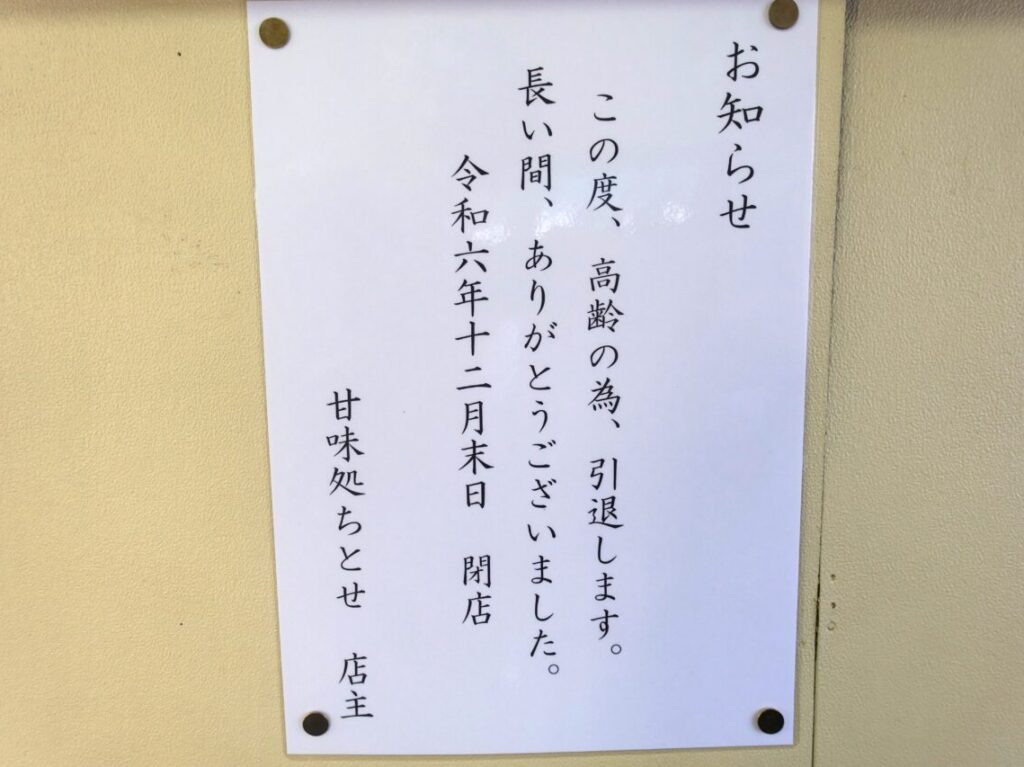 お知らせ
この度、高齢の為、引退します。
長い間、ありがとうございました。
令和六年十二月末日　閉店
甘味処ちとせ　店主